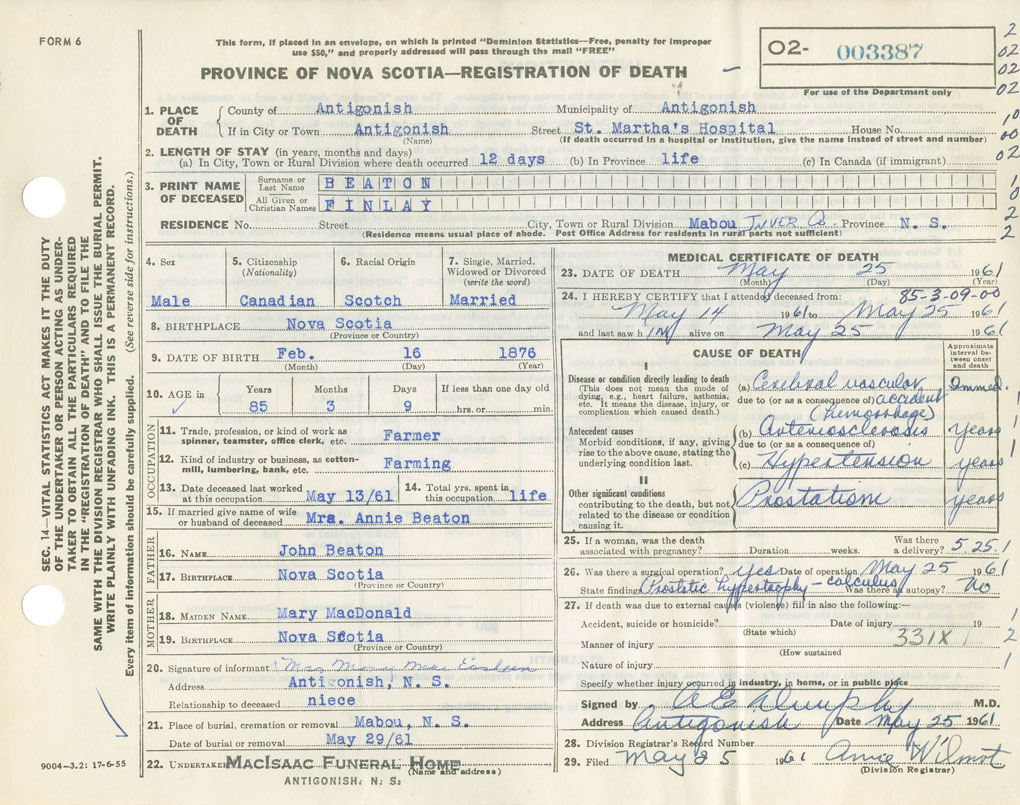 FORM 6
This form, if placed in an envelope, on which is printed "Dominion Statistics—Free, penalty for improper
use $50," and properly addressed will pass through the mail "FREE"
PROVINCE OF NOVA SCOTIA—REGISTRATION OF DEATH
O2- 003387
For use of the Department only
2
02
02
02
10
00
02
10
0
2
2
SEC. 14—VITAL STATISTICS ACT MAKES IT THE DUTY
OF THE UNDERTAKER OR PERSON ACTING AS UNDER-
TAKER TO OBTAIN ALL THE PARTICULARS REQUIRED
IN THE "REGISTRATION OF DEATH" AND TO FILE THE
SAME WITH THE DIVISION REGISTRAR WHO SHALL ISSUE THE BURIAL PERMIT.
WRITE PLAINLY WITH UNFADING INK. THIS IS A PERMANENT RECORD.
Every item of information should be carefully supplied. (See reverse side for instructions.)
1. PLACE OF DEATH
County of Antigonish Municipality of Antigonish
If in City or Town Antigonish Street St. Martha's Hospital House No.
(Name) (If death occurred in a hospital or institution, give the name instead of street and number)
2. LENGTH OF STAY (in years, months and days)
(a) In City, Town or Rural Division where death occurred 12 days (b) In Province life (c) In Canada (if immigrant)
3. PRINT NAME OF DECEASED
Surname or Last Name BEATON
All Given or Christian Names FINLAY
RESIDENCE No. Street City, Town or Rural Division Mabou Inver Co. Province N. S.
(Residence means usual place of abode. Post Office Address for residents in rural parts not sufficient)
4. Sex
Male
5. Citizenship
(Nationality)
Canadian
6. Racial Origin
Scotch
7. Single, Married,
Widowed or Divorced
(write the word)
Married
8. BIRTHPLACE Nova Scotia
(Province or Country)
9. DATE OF BIRTH Feb. 16 1876
(Month) (Day) (Year)
10. AGE in
Years Months Days If less than one day old
85 3 9 hrs. or min.
OCCUPATION
11. Trade, profession, or kind of work as
spinner, teamster, office clerk, etc. Farmer
12. Kind of industry or business, as cotton-
mill, lumbering, bank, etc. Farming
13. Date deceased last worked
at this occupation May 13/61
14. Total yrs. spent in
this occupation life
15. If married give name of wife
or husband of deceased Mrs. Annie Beaton
FATHER
16. NAME John Beaton
17. BIRTHPLACE Nova Scotia
(Province or Country)
MOTHER
18. MAIDEN NAME Mary MacDonald
19. BIRTHPLACE Nova Scotia
(Province or Country)
20. Signature of informant Mrs
Address Antigonish, N. S.
Relationship to deceased niece
21. Place of burial, cremation or removal Mabou, N. S.
Date of burial or removal May 29/61
22. UNDERTAKER MacIsaac Funeral Home
(Name and address)
ANTIGONISH, N. S.
9004—3.2: 17-6-55
MEDICAL CERTIFICATE OF DEATH
23. DATE OF DEATH May 25 1961
(Month) (Day) (Year)
85-3-09-00
24. I HEREBY CERTIFY that I attended deceased from:
May 14 1961 to May 25 1961
and last saw him alive on May 25 1961
CAUSE OF DEATH
Approximate
interval be-
tween onset
and death
I
Disease or condition directly leading to death
(This does not mean the mode of
dying, e.g., heart failure, asthenia,
etc. It means the disease, injury, or
complication which caused death.)
(a) Cerebral vascular Immed.
due to (or as a consequence of) accident
(hemorrhage)
Antecedent causes
Morbid conditions, if any, giving
rise to the above cause, stating the
underlying condition last.
(b) Arteriosclerosis years
due to (or as a consequence of)
(c) Hypertension years
II
Other significant conditions
contributing to the death, but not
related to the disease or condition
causing it.
Prostatism years
25. If a woman, was the death
associated with pregnancy? Duration weeks. Was there
a delivery? 5.25.1
26. Was there a surgical operation? yes Date of operation May 25 1961
State findings Prostatic hypertrophy - calculus Was there an autopsy? No
27. If death was due to external causes (violence) fill in also the following:—
Accident, suicide or homicide? Date of injury 19
(State which)
331X
Manner of injury
(How sustained
Nature of injury
1
2
1
Specify whether injury occurred in industry, in home, or in public place
Signed by A E Dunphy M.D.
Address Antigonish Date May 25 1961
28. Division Registrar's Record Number
29. Filed May 25 1961 Anne Wilmot
(Division Registrar)